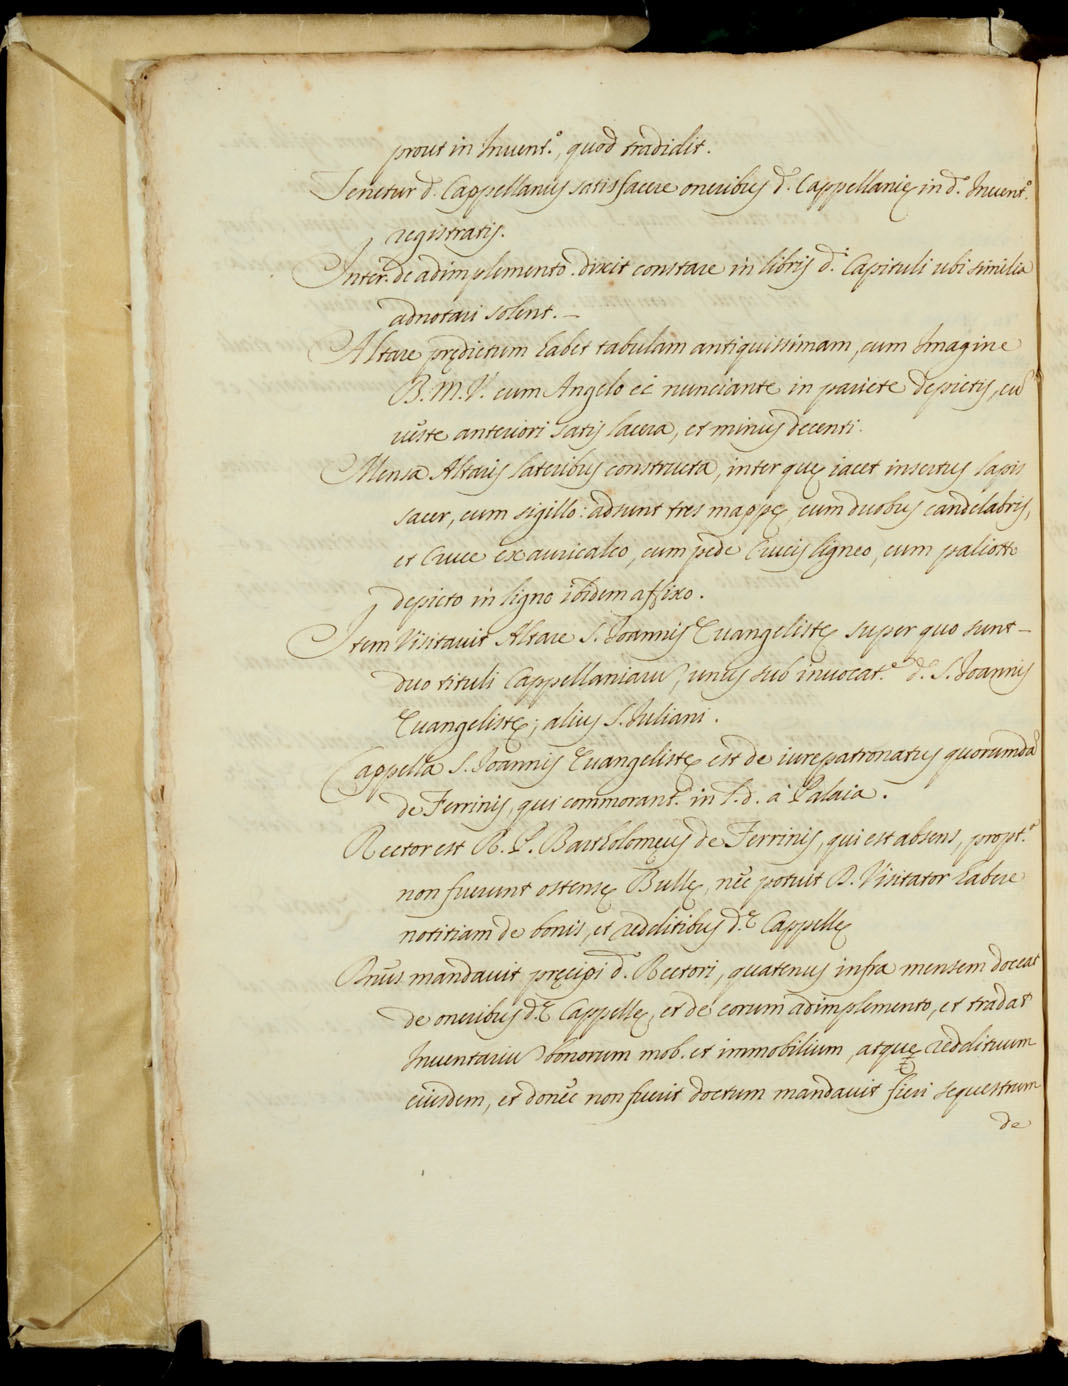 prout in Inuent.º, quod tradidit.
Tenetur d. Cappellanus satisfacere oneribus d. Cappellanię in d.º Inuent.º
registratis.
Inter. de adimplemento dixit constare in libris d.i Capituli ubi similia
adnotari solent. –
Altare prędictum habet tabulam antiquissimam, cum Imagine
B. M. V. cum Angelo ei nunciante in pariete depictis, cū
ueste anteriori satis lacera, et minus decenti.
Mensa Altaris lateribus constructa, inter quę iacet insertus lapis
sacer, cum sigillo: adsunt tres mappę, cum duobus candelabris,
et Cruce ex auricalco, cum pede Crucis ligneo, cum paliotto
depicto in ligno ibidem affixo.
Item Visitauit Altare S. Ioannis Euangelistę super quo sunt –
duo tituli Cappellaniarū, unus sub inuocat.e d. S. Ioannis
Euangelistę; alius S. Iuliani.
Cappella S. Ioannis Euangelistę est de iurepatronatus quorumdā
de Ferrinis, qui commorant.r in l. d. à Palaia.
Rector est R. P. Bartholomęus de Ferrinis, qui est absens, propt.ª
non fuerunt ostensę Bullę, nec potuit D. Visitator habere
notitiam de bonis, et redditibus d.ę Cappellę
Dnus mandauit pręcipi d. Rectori, quatenus infra mensem doceat
de oneribus d.ę Cappellę, et de eorum adimplemento, et tradat
Inuentariū bonorum mob. et immobilium, atque reddituum
eiusdem, et donec non fuerit doctum mandauit fieri sequestrum
de